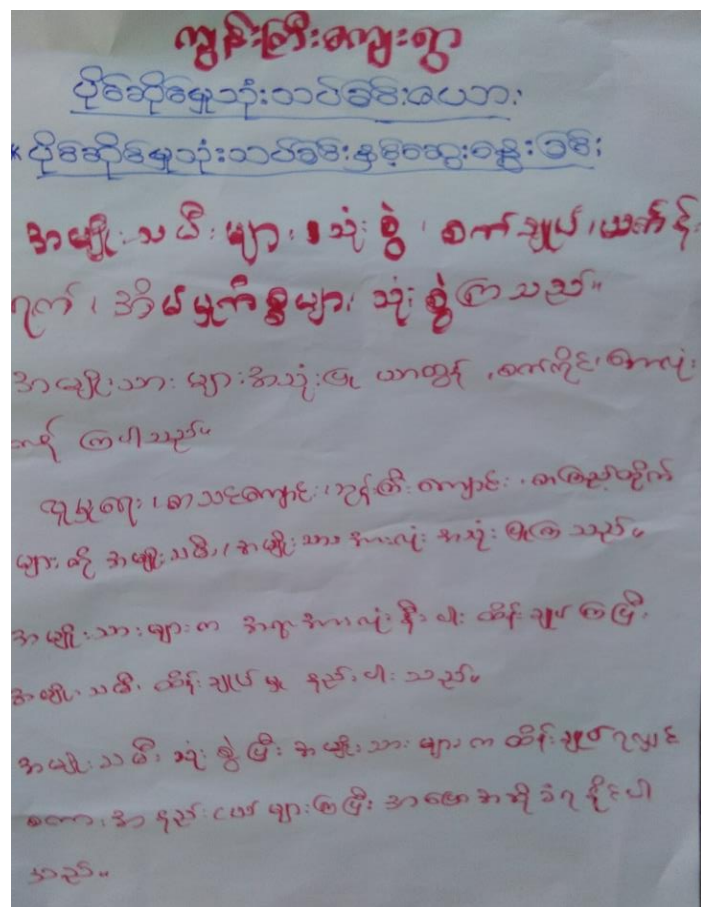 ကျွန်းကြီးကျေးရွာ
ပိုင်ဆိုင်မှုသုံးသပ်ခြင်းဇယား
* ပိုင်ဆိုင်မှုသုံးသပ်ခြင်းနှင့်ဆွေးနွေးခြင်း
အမျိုးသမီးများ သုံးစွဲ ၊ စက်ချုပ် ၊ ယက်ကန်း
ရက် ၊ အိမ်မှုကိစ္စများ သုံးစွဲကြသည်။
အမျိုးသားများအသုံးပြု ယာထွန် ၊ စက်ကိုင်၊
ကြပါသည်။
လူမှုရေး ၊ စာသင်ကျောင်း ၊ ဘုန်းကြီးကျောင်း ၊ စာကြည့်တိုက်
များကို အမျိုးသမီး ၊ အမျိုးသားအားလုံး အသုံးပြုကြသည်။
အမျိုးသားများက အရာအားလုံးနီးပါး ထိန်းချုပ်ကြပြီး
အမျိုးသမီး ထိန်းချုပ်မှု နည်းပါးသည်။
အမျိုးသမီး သုံးစွဲပြီး အမျိုးသားများက ထိန်းချုပ်ရလျှင်
စကားအနည်းငယ်များကြပြီး အပြောအဆိုခံရနိုင်ပါ
သည်။